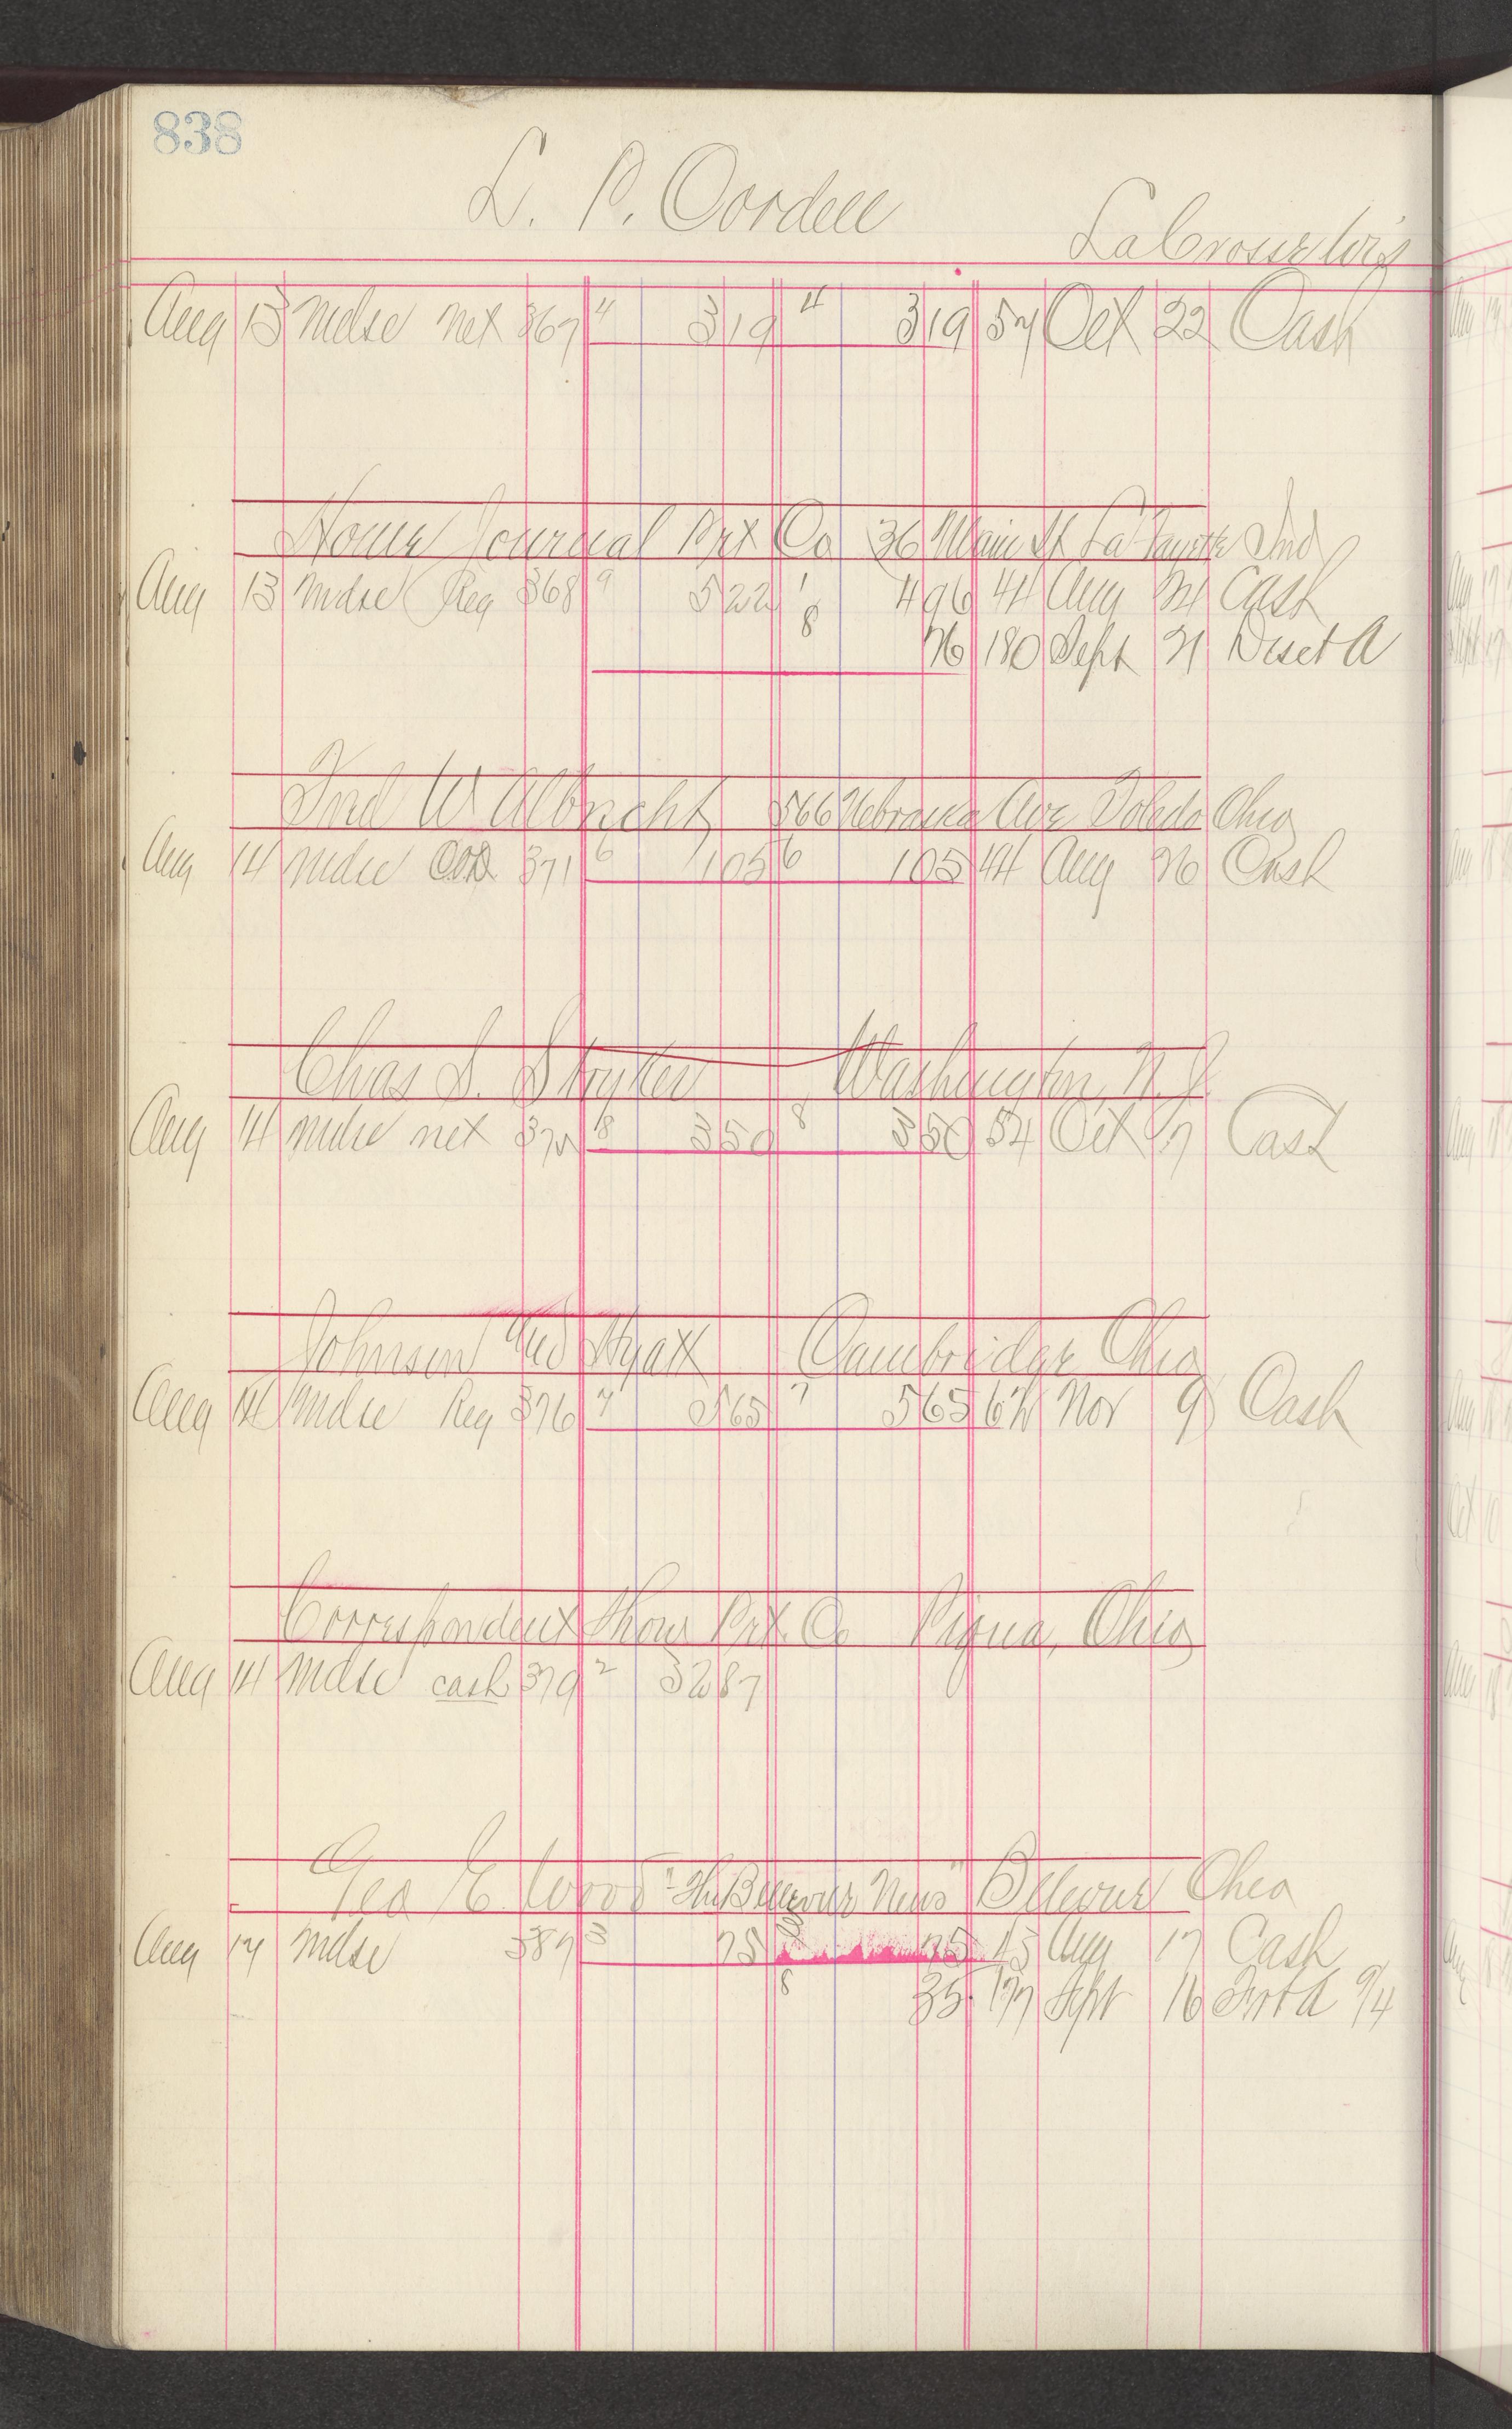 838
L. P. Cordell
LaCrosse Wis
Aug 13 Mdse net 367 4 319 4 319 57 Oct 22 Cash
Home Journal Prt Co 36 Main St LaFayette Ind
Aug 13 Mdse Reg 368 9 522 1 496 44 Aug 24 Cash
8 26 180 Sept 21 Disct A
Fred W Albrecht 566 Nebraska Ave Toledo Ohio
Aug 14 Mdse COD 371 6 105 6 105 44 Aug 26 Cash
Chas S. Stryker Washington, N.J.
Aug 14 Mdse net 372 8 350 8 350 54 Oct 7 Cash
Johnson and Hyatt Cambridge Ohio
Aug 14 Mdse Reg 376 7 565 7 565 62 Nov 9 Cash
Correspondent Show Prt. Co Piqua, Ohio
Aug 14 Mdse cash 379 2 3287
Geo E. Wood "The Bellevue News" Bellevue Ohio
Aug 14 Mdse 387 3 75 75 43 Aug 17 Cash
8 35 177 Sept 16 Frt A 9/4